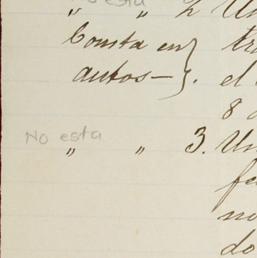 esta
„ „ 2 Un
Consta en } tr
autos — . el
8 d
No esta
„ „ 3. Un
fe
no
do